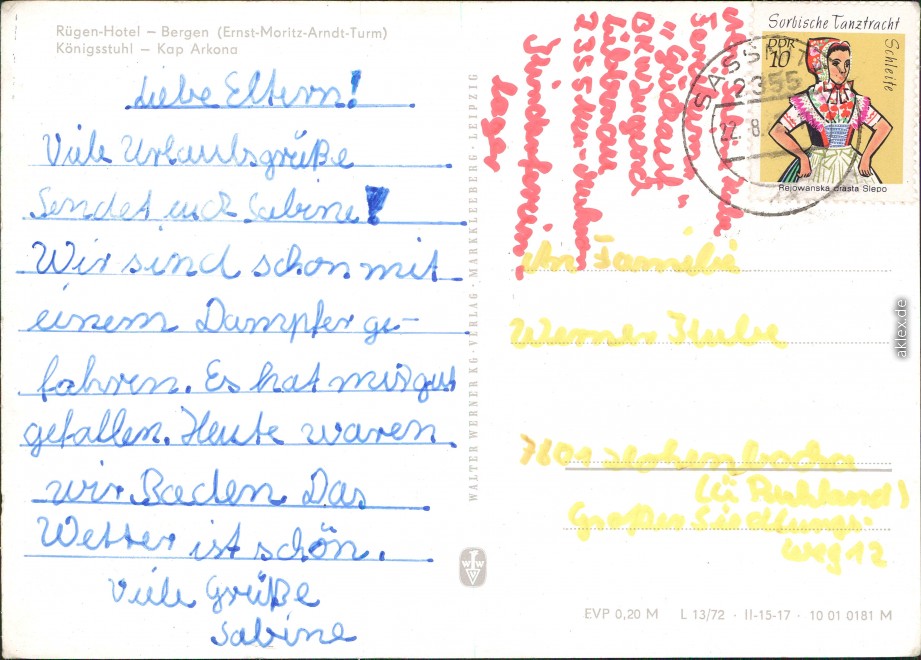 Rügen-Hotel – Bergen (Ernst-Moritz-Arndt-Turm)
Königsstuhl – Kap Arkona
Liebe Eltern!
Viele Urlaubsgrüße
Sendet euch Sabine!
Wir sind schon mit
einem Dampfer ge-
fahren. Es hat mir gut
gefallen. Heute waren
wir Baden Das
Wetter ist schön.
Viele Grüße
Sabine
WALTER WERNER KG · VERLAG · MARKKLEEBERG · LEIPZIG
WWV
Kinderferien
lager
Sorbische Tanztracht
Schleife
DDR
10
Rejowanska drasta Slepo
SASSNITZ
2355
22.8.
An Familie
Werner
7801
(ü Ruhland)
Großer Siedlungs-
weg 12
EVP 0,20 M L 13/72 · II-15-17 · 10 01 0181 M
akpool.de